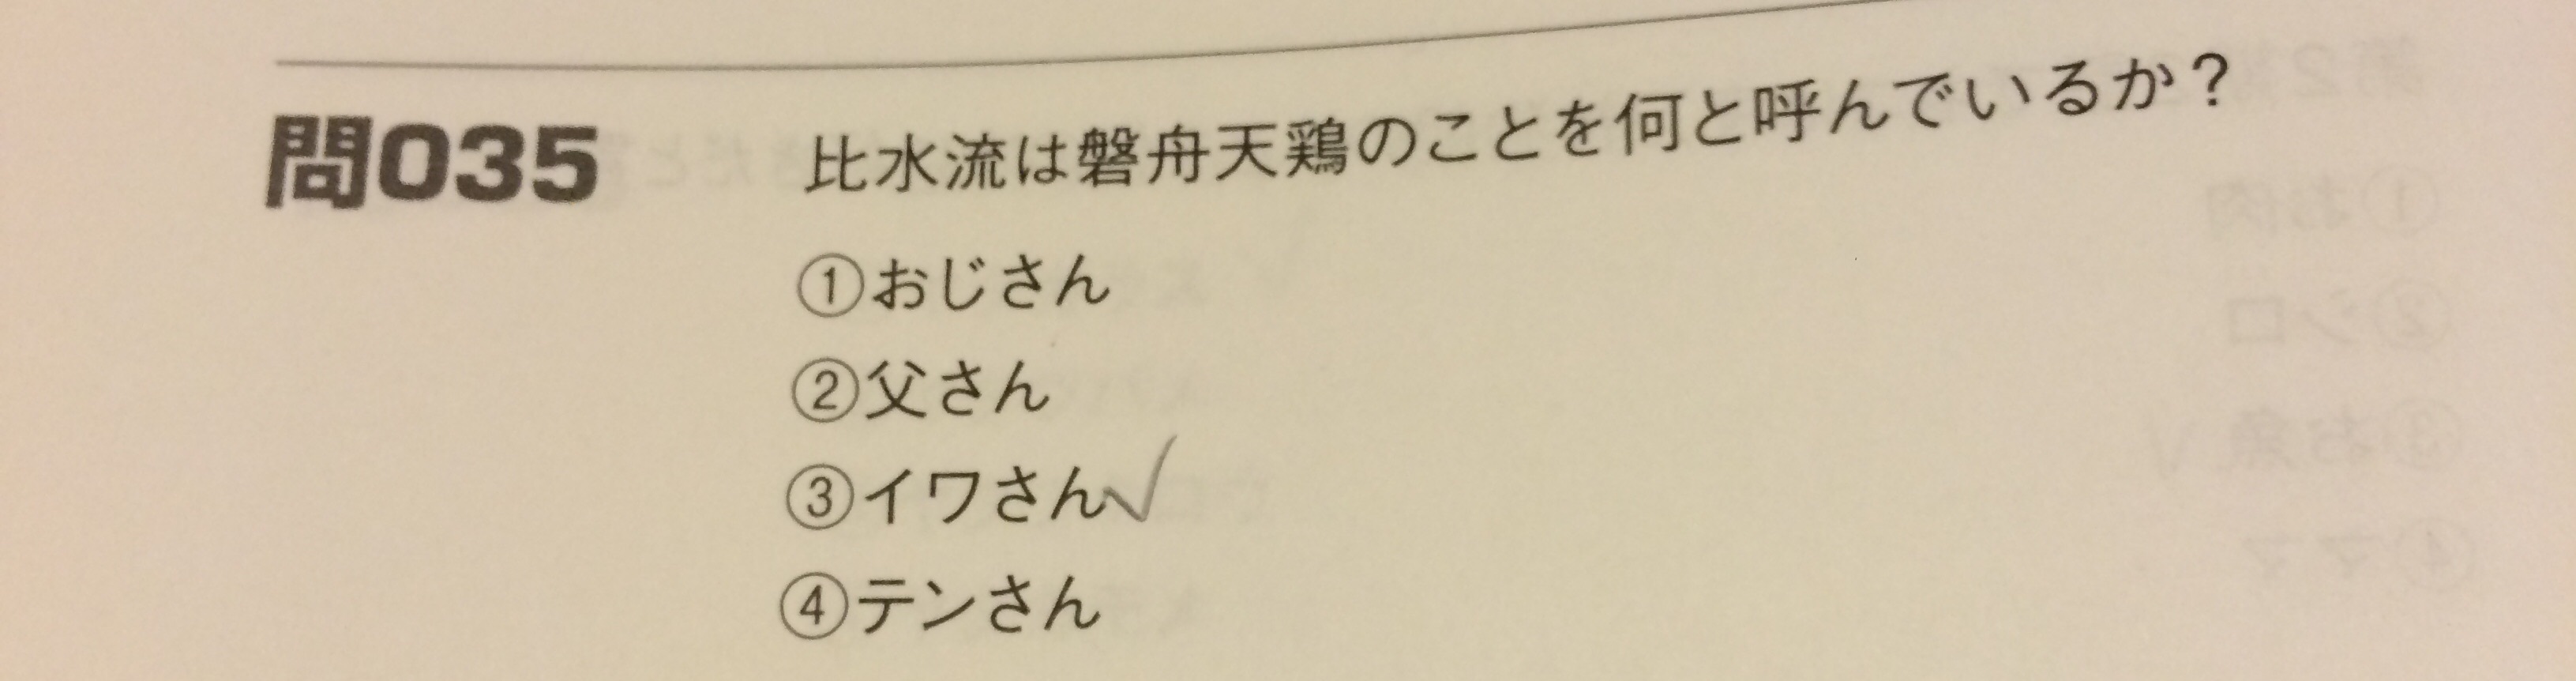 問035 比水流は磐舟天鶏のことを何と呼んでいるか？
①おじさん
②父さん
③イワさん✓
④テンさん